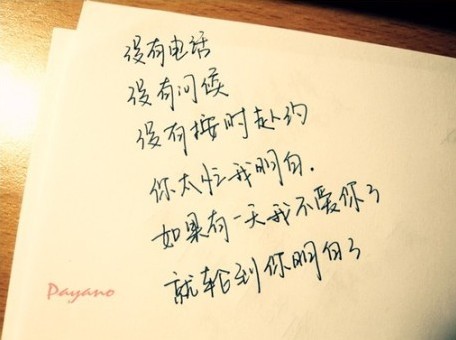 没有电话
没有问候
没有按时赴约
你太忙我明白.
如果有一天我不爱你了
就轮到你明白了
Payano